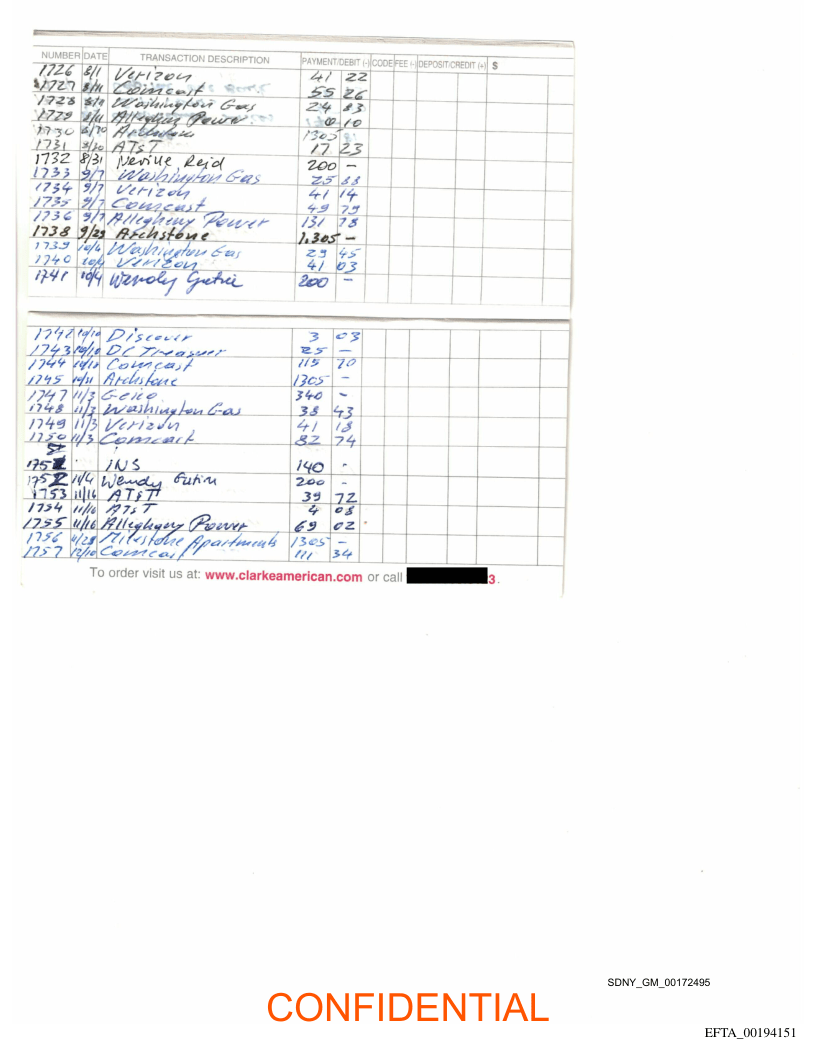 NUMBER DATE TRANSACTION DESCRIPTION PAYMENT/DEBIT (-) CODE FEE (-) DEPOSIT/CREDIT (+) $
1726 8/1 Verizon 41 22
1727 8/11 Comcast 55 26
1728 Washington Gas 24 83
1729 8/11 Allegheny Power 10
1730 Archstone 1305
1731 8/30 AT&T 17 23
1732 8/31 Neville Reid 200 -
1733 9/7 Washington Gas 25 88
1734 9/7 Verizon 41 14
1735 9/7 Comcast 49 79
1736 9/7 Allegheny Power 131 78
1738 9/29 Archstone 1,305 -
1739 10/4 Washington Gas 29 45
1740 10/4 Verizon 41 03
1741 10/4 Wendy 200 -
1742 10/10 Discover 3 03
1743 10/10 DC Treasurer 25 -
1744 10/10 Comcast 115 70
1745 10/31 Archstone 1305 -
1747 11/3 Geico 340 -
1748 11/3 Washington Gas 38 43
1749 11/3 Verizon 41 18
1750 11/3 Comcast 82 74
INS 140 -
1752 11/4 Wendy 200 -
1753 11/16 AT&T 39 72
1754 11/16 AT&T 4 08
1755 11/16 Allegheny Power 69 02
1756 11/28 Milestone Apartments 1305 -
1757 12/10 Comcast 111 34
To order visit us at: www.clarkeamerican.com or call 3.
SDNY_GM_00172495
CONFIDENTIAL
EFTA_00194151